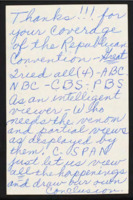 Thanks!!! for
your Coverage
of the Republican
Convention – Great
I need all (4) - ABC
NBC - CBS - PBS
As an intelligent
viewer - Who
needs the venom
and partial views
as displayed by
them! C-SPAN
just let us view
all the happenings
and draw our own
Conclusion